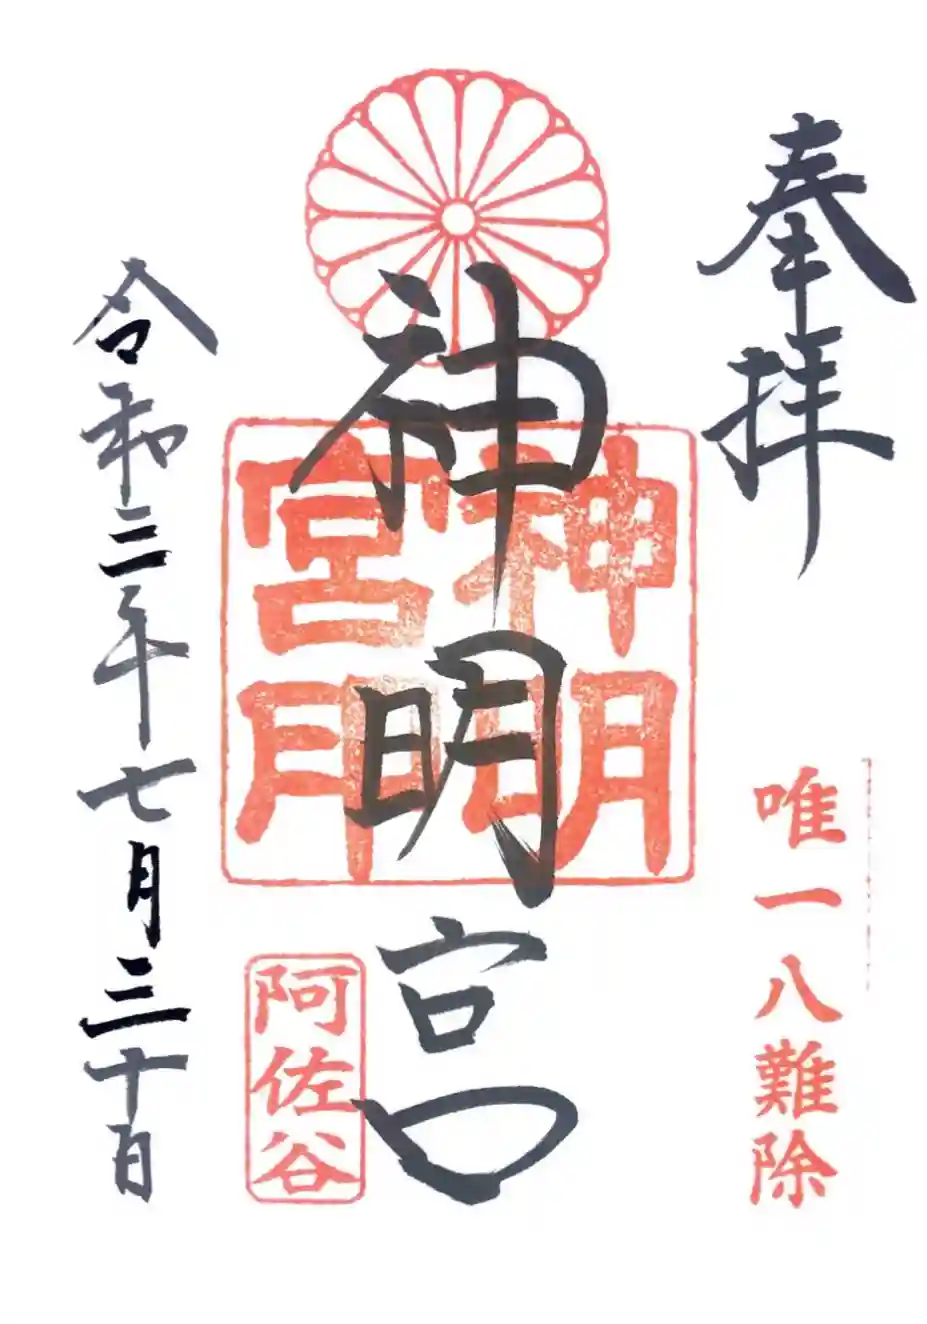 奉拝
唯一八難除
神明宮
神明宮
阿佐谷
令和二年七月三十日